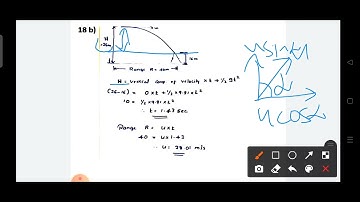 18 b)
H
16m
Range R = 40m
H = Vertical comp of velocity × t + 1/2 gt²
(26-16) = 0×t + 1/2 × 9.81 × t²
10 = 1/2 × 9.81 × t²
∴ t = 1.43 sec
Range R = u×t
40 = u×1.43
∴ u = 28.01 m/s
u sin α
α
u cos α